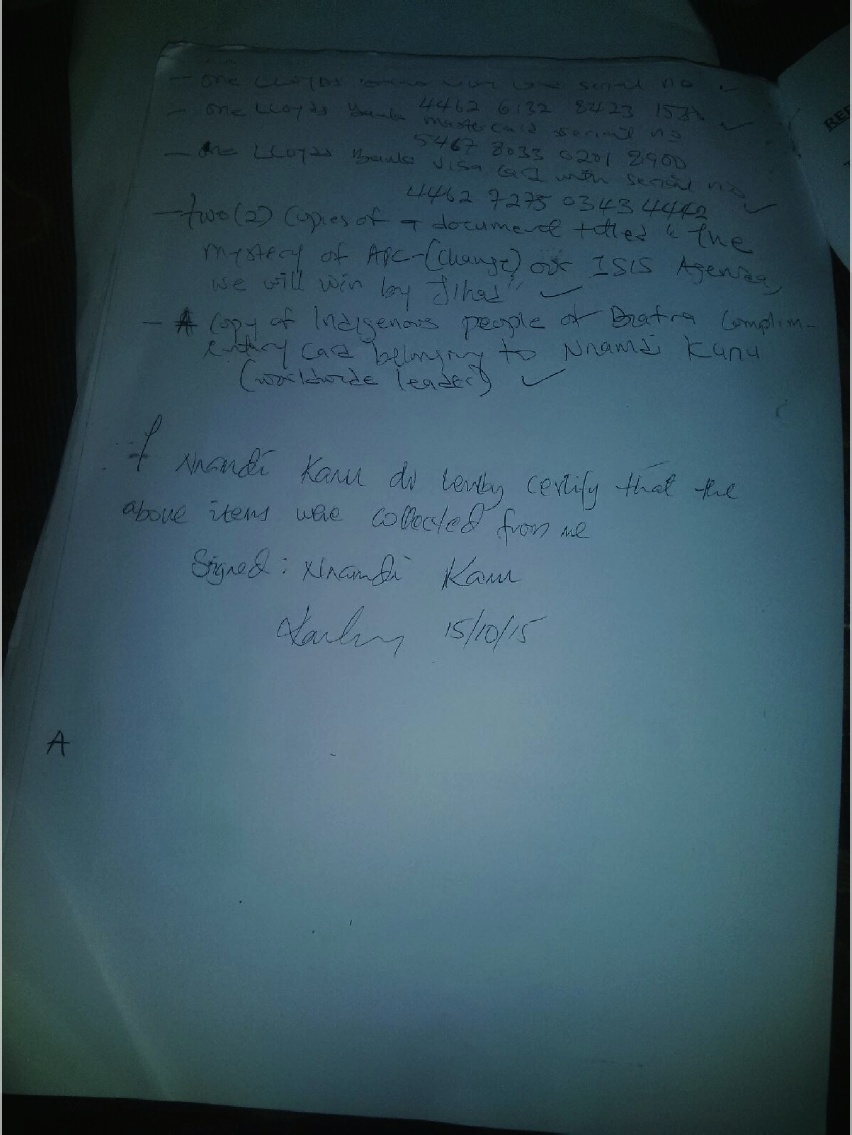 - one LLoyds serial no
- one LLoyds Bank 4462 6132 8423
mastercard serial no
- One LLoyds Bank 5467 8033 0201 8900
visa card with serial no
4462 7275 0343 4442
- two (2) Copies of a document titled "the
mystery of APC-(change) our ISIS Agenda,
we will win by Jihad"
- A copy of Indigenous people of Biafra Complim-
entary card belonging to Nnamdi Kanu
(worldwide leader)
I Nnamdi Kanu do hereby certify that the
above items were collected from me
Signed: Nnamdi Kanu
15/10/15
A